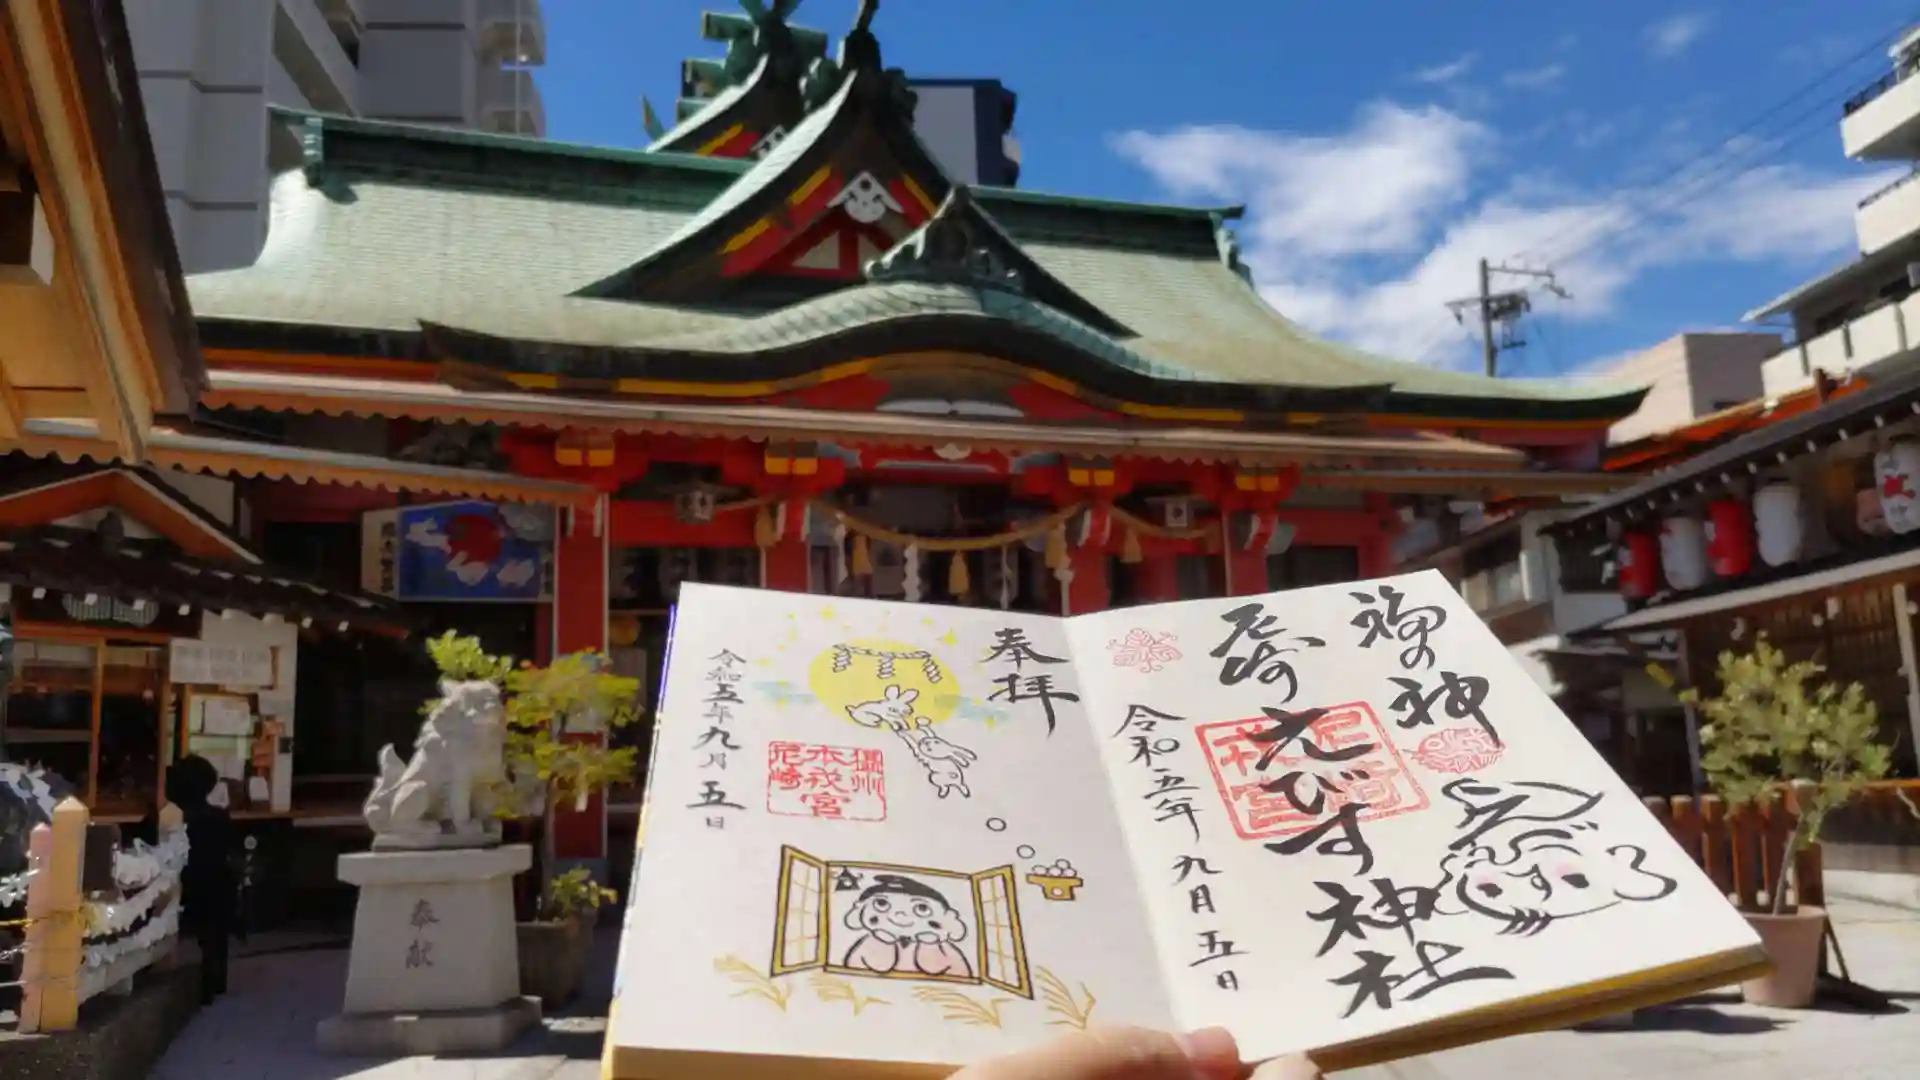 福の神
尼崎えびす神社
令和五年九月五日
尼崎
戎宮
えびす
奉拝
令和五年九月五日
本戎宮
尼崎
奉献